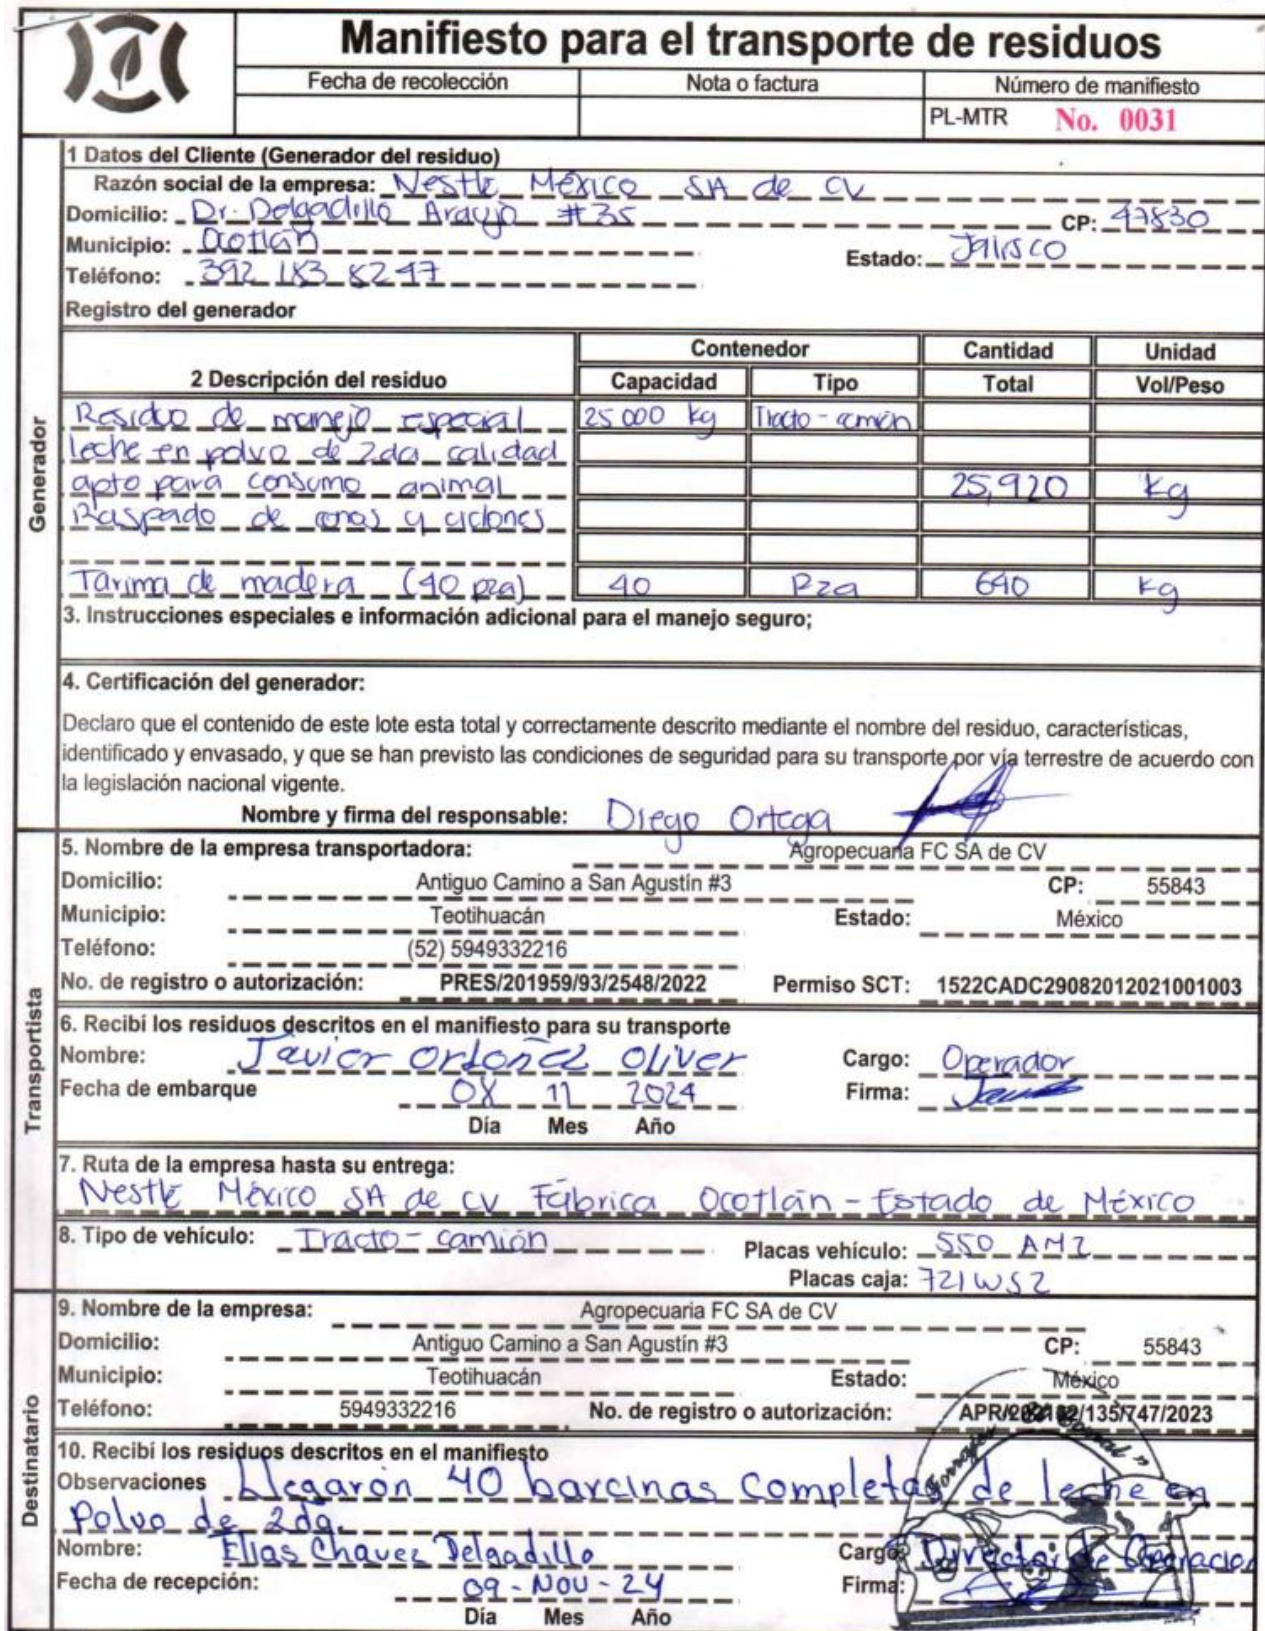 Manifiesto para el transporte de residuos
Fecha de recolección Nota o factura Número de manifiesto
PL-MTR No. 0031
1 Datos del Cliente (Generador del residuo)
Razón social de la empresa: Nestlé México SA de CV
Domicilio: Dr. Delgadillo Araujo #35 CP: 47830
Municipio: Ocotlán Estado: Jalisco
Teléfono: 392 183 8247
Registro del generador
Contenedor Cantidad Unidad
2 Descripción del residuo Capacidad Tipo Total Vol/Peso
Residuo de manejo especial 25 000 kg Tracto-camión
leche en polvo de 2da calidad
apto para consumo animal 25,920 kg
Raspado de conos y ciclones
Tarima de madera (40 pza) 40 Pza 640 kg
3. Instrucciones especiales e información adicional para el manejo seguro;
4. Certificación del generador:
Declaro que el contenido de este lote esta total y correctamente descrito mediante el nombre del residuo, características,
identificado y envasado, y que se han previsto las condiciones de seguridad para su transporte por vía terrestre de acuerdo con
la legislación nacional vigente.
Nombre y firma del responsable: Diego Ortega
5. Nombre de la empresa transportadora: Agropecuaria FC SA de CV
Domicilio: Antiguo Camino a San Agustín #3 CP: 55843
Municipio: Teotihuacán Estado: México
Teléfono: (52) 5949332216
No. de registro o autorización: PRES/201959/93/2548/2022 Permiso SCT: 1522CADC29082012021001003
6. Recibí los residuos descritos en el manifiesto para su transporte
Nombre: Javier Ordoñez Oliver Cargo: Operador
Fecha de embarque 08 11 2024 Firma:
Día Mes Año
7. Ruta de la empresa hasta su entrega:
Nestlé México SA de CV Fábrica Ocotlán - Estado de México
8. Tipo de vehículo: Tracto-camión Placas vehículo: 550 AM2
Placas caja: 721WS2
9. Nombre de la empresa: Agropecuaria FC SA de CV
Domicilio: Antiguo Camino a San Agustín #3 CP: 55843
Municipio: Teotihuacán Estado: México
Teléfono: 5949332216 No. de registro o autorización: /135/747/2023
10. Recibí los residuos descritos en el manifiesto
Observaciones Llegarón 40 barcinas completas de leche en
Polvo de 2da.
Nombre: Elias Chavez Delgadillo Cargo: Director de Operacion
Fecha de recepción: 09-Nov-24 Firma:
Día Mes Año
Generador
Transportista
Destinatario